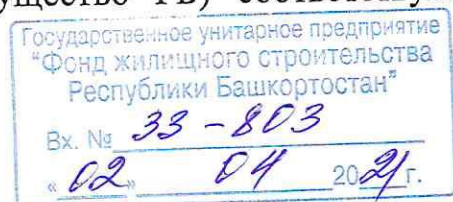 ущество РБ) соответству
Государственное унитарное предприятие
"Фонд жилищного строительства
Республики Башкортостан"
Вх. № 33-803
"02" 04 2021г.